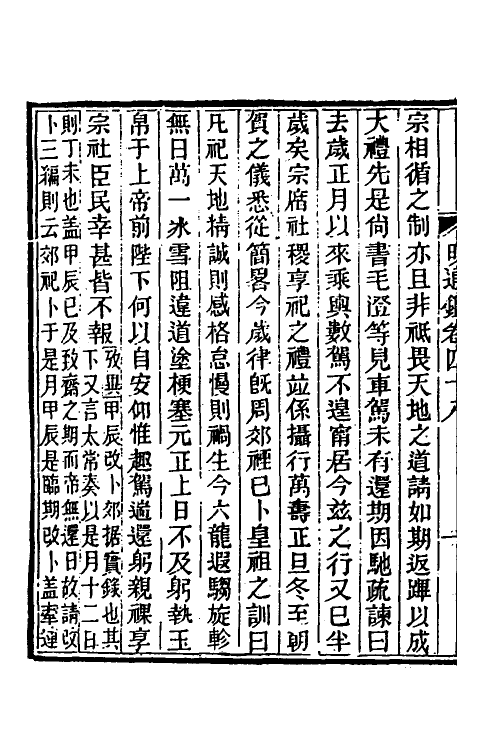 明通鑑卷四十八
宗相循之制亦且非祇畏天地之道請如期返蹕以成
大禮先是尚書毛澄等見車駕未有還期因馳疏諫曰
去歲正月以來乘輿數駕不遑甯居今玆之行又巳半
歲矣宗廟社稷享祀之禮並係攝行萬壽正旦冬至朝
賀之儀悉從簡畧今歲律旣周郊禋巳卜皇祖之訓曰
凡祀天地精誠則感格怠慢則禍生今六龍遐騁旋軫
無日萬一冰雪阻違道塗梗塞元正上日不及躬執玉
帛于上帝前陛下何以自安仰惟趣駕遄還躬親祼享
宗社臣民幸甚皆不報
攷異甲辰改卜郊據實錄也其
下又言太常奏以是月十二日
則丁未也盖甲辰巳及致齋之期而帝無還日故請改
卜三編則云郊祀卜于是月甲辰是臨期改卜盖牽連